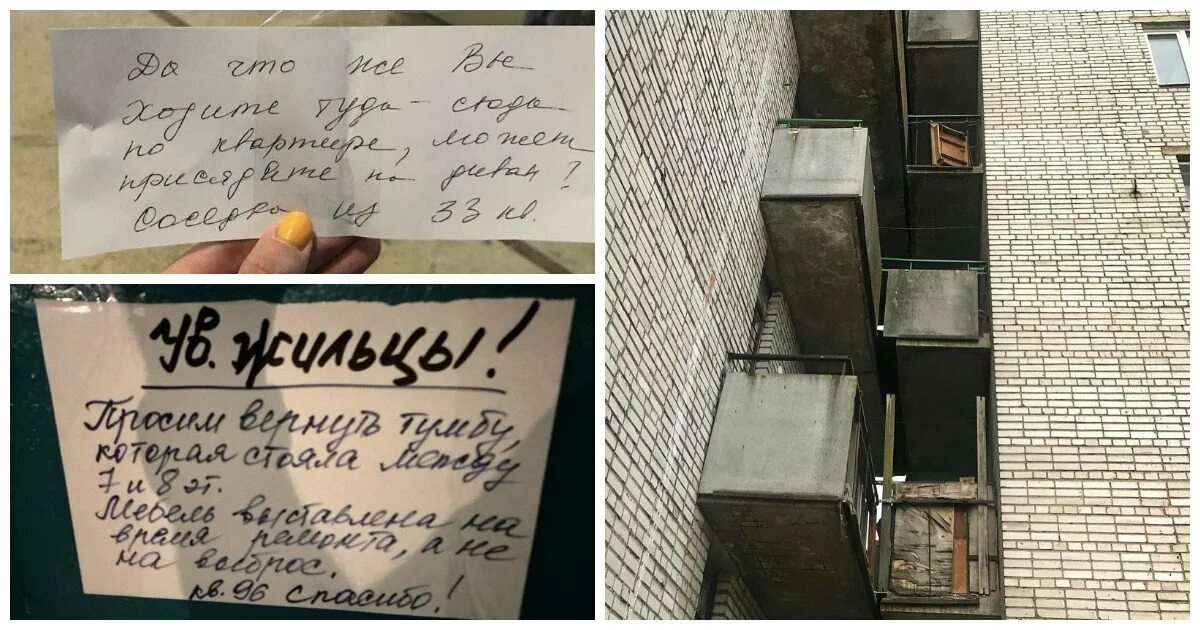 Да что же Вы
ходите туда-сюда
по квартире, может
присядите на диван?
Соседка из 33 кв.
Ув. жильцы!
Просим вернуть тумбу,
которая стояла между
7 и 8 эт.
Мебель выставлена на
время ремонта, а не
на выброс.
кв. 96 Спасибо!